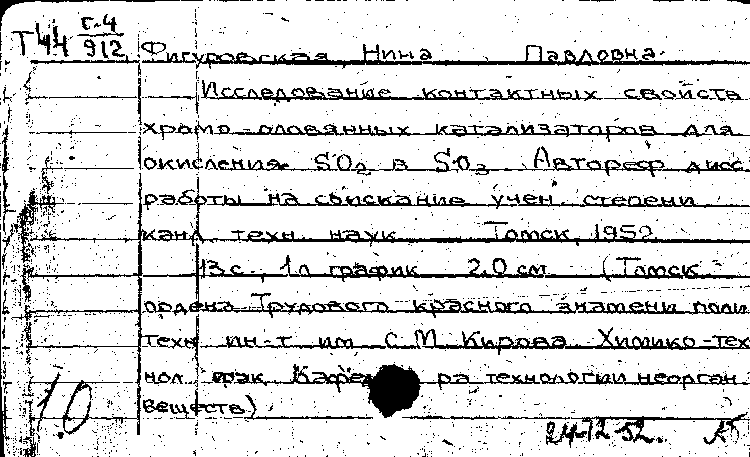 Т44 Г-4
912
Фигуровская, Нина Павловна.
Исследование контактных свойств
хромо-оловянных катализаторов для
окисления SO2 в SO3 Автореф дисс.
работы на соискание учен степени
канд техн. наук Томск, 1952
13 с., 1 л график 20 см (Томск
ордена Трудового красного знамени поли
техн ин-т им С М Кирова Химико-тех
нол. фак Кафед ра технологии неорган
веществ)
10
24-12-52.